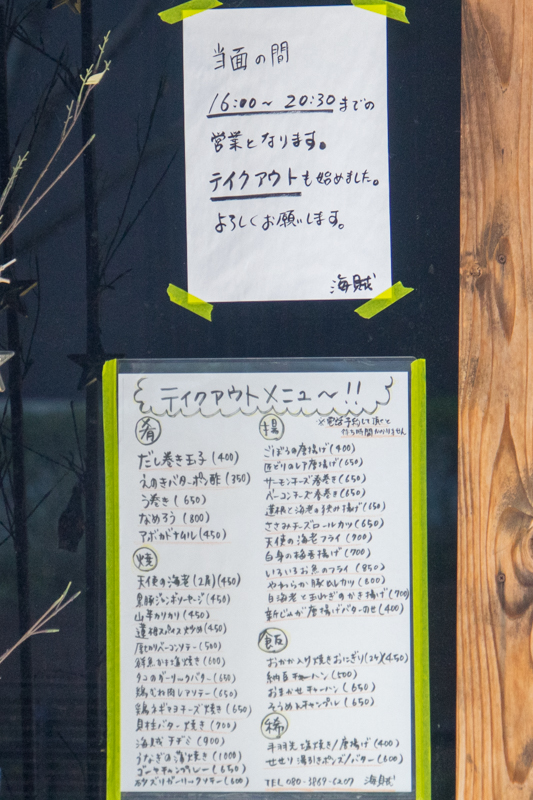 当面の間
16:00～20:30までの
営業となります。
テイクアウトも始めました。
よろしくお願いします。
海賊
テイクアウトメニュー〜!!
肴
だし巻き玉子(400)
えのきバターポン酢(350)
う巻き(650)
なめろう(800)
アボカドナムル(450)
焼
天使の海老(2尾)(450)
黒豚ジャンボソーセージ(450)
山芋カリカリ(450)
蓮根スパイス炒め(450)
ベーコンソテー(500)
鮮魚かま塩焼き(600)
タコのガーリックバター(650)
鶏むね肉ソテー(650)
鶏ネギマヨチーズ焼き(650)
貝柱バター焼き(700)
海賊チヂミ(900)
うなぎの蒲焼き(1000)
ゴーヤチャンプルー(650)
砂ズリガーリックソテー(600)
揚
※電話予約して頂くと
待ち時間かかりません
ごぼうの唐揚げ(400)
レア唐揚げ(650)
サーモンチーズ春巻き(650)
ベーコンチーズ春巻き(650)
蓮根と海老の挟み揚げ(650)
ささみチーズロールカツ(650)
天使の海老フライ(900)
白身の梅香揚げ(700)
いろいろお魚のフライ(850)
やわらか豚ヒレカツ(800)
白海老と玉ねぎのかき揚げ(700)
新じゃが唐揚げバターのせ(400)
飯
おかか入り焼きおにぎり(2ケ)(450)
納豆チャーハン(500)
おまかせチャーハン(650)
そうめんチャンプル(650)
稀
手羽先塩焼き/唐揚げ(400)
せせり湯引きポンズ/バター(600)
TEL 080-3869-6207 海賊